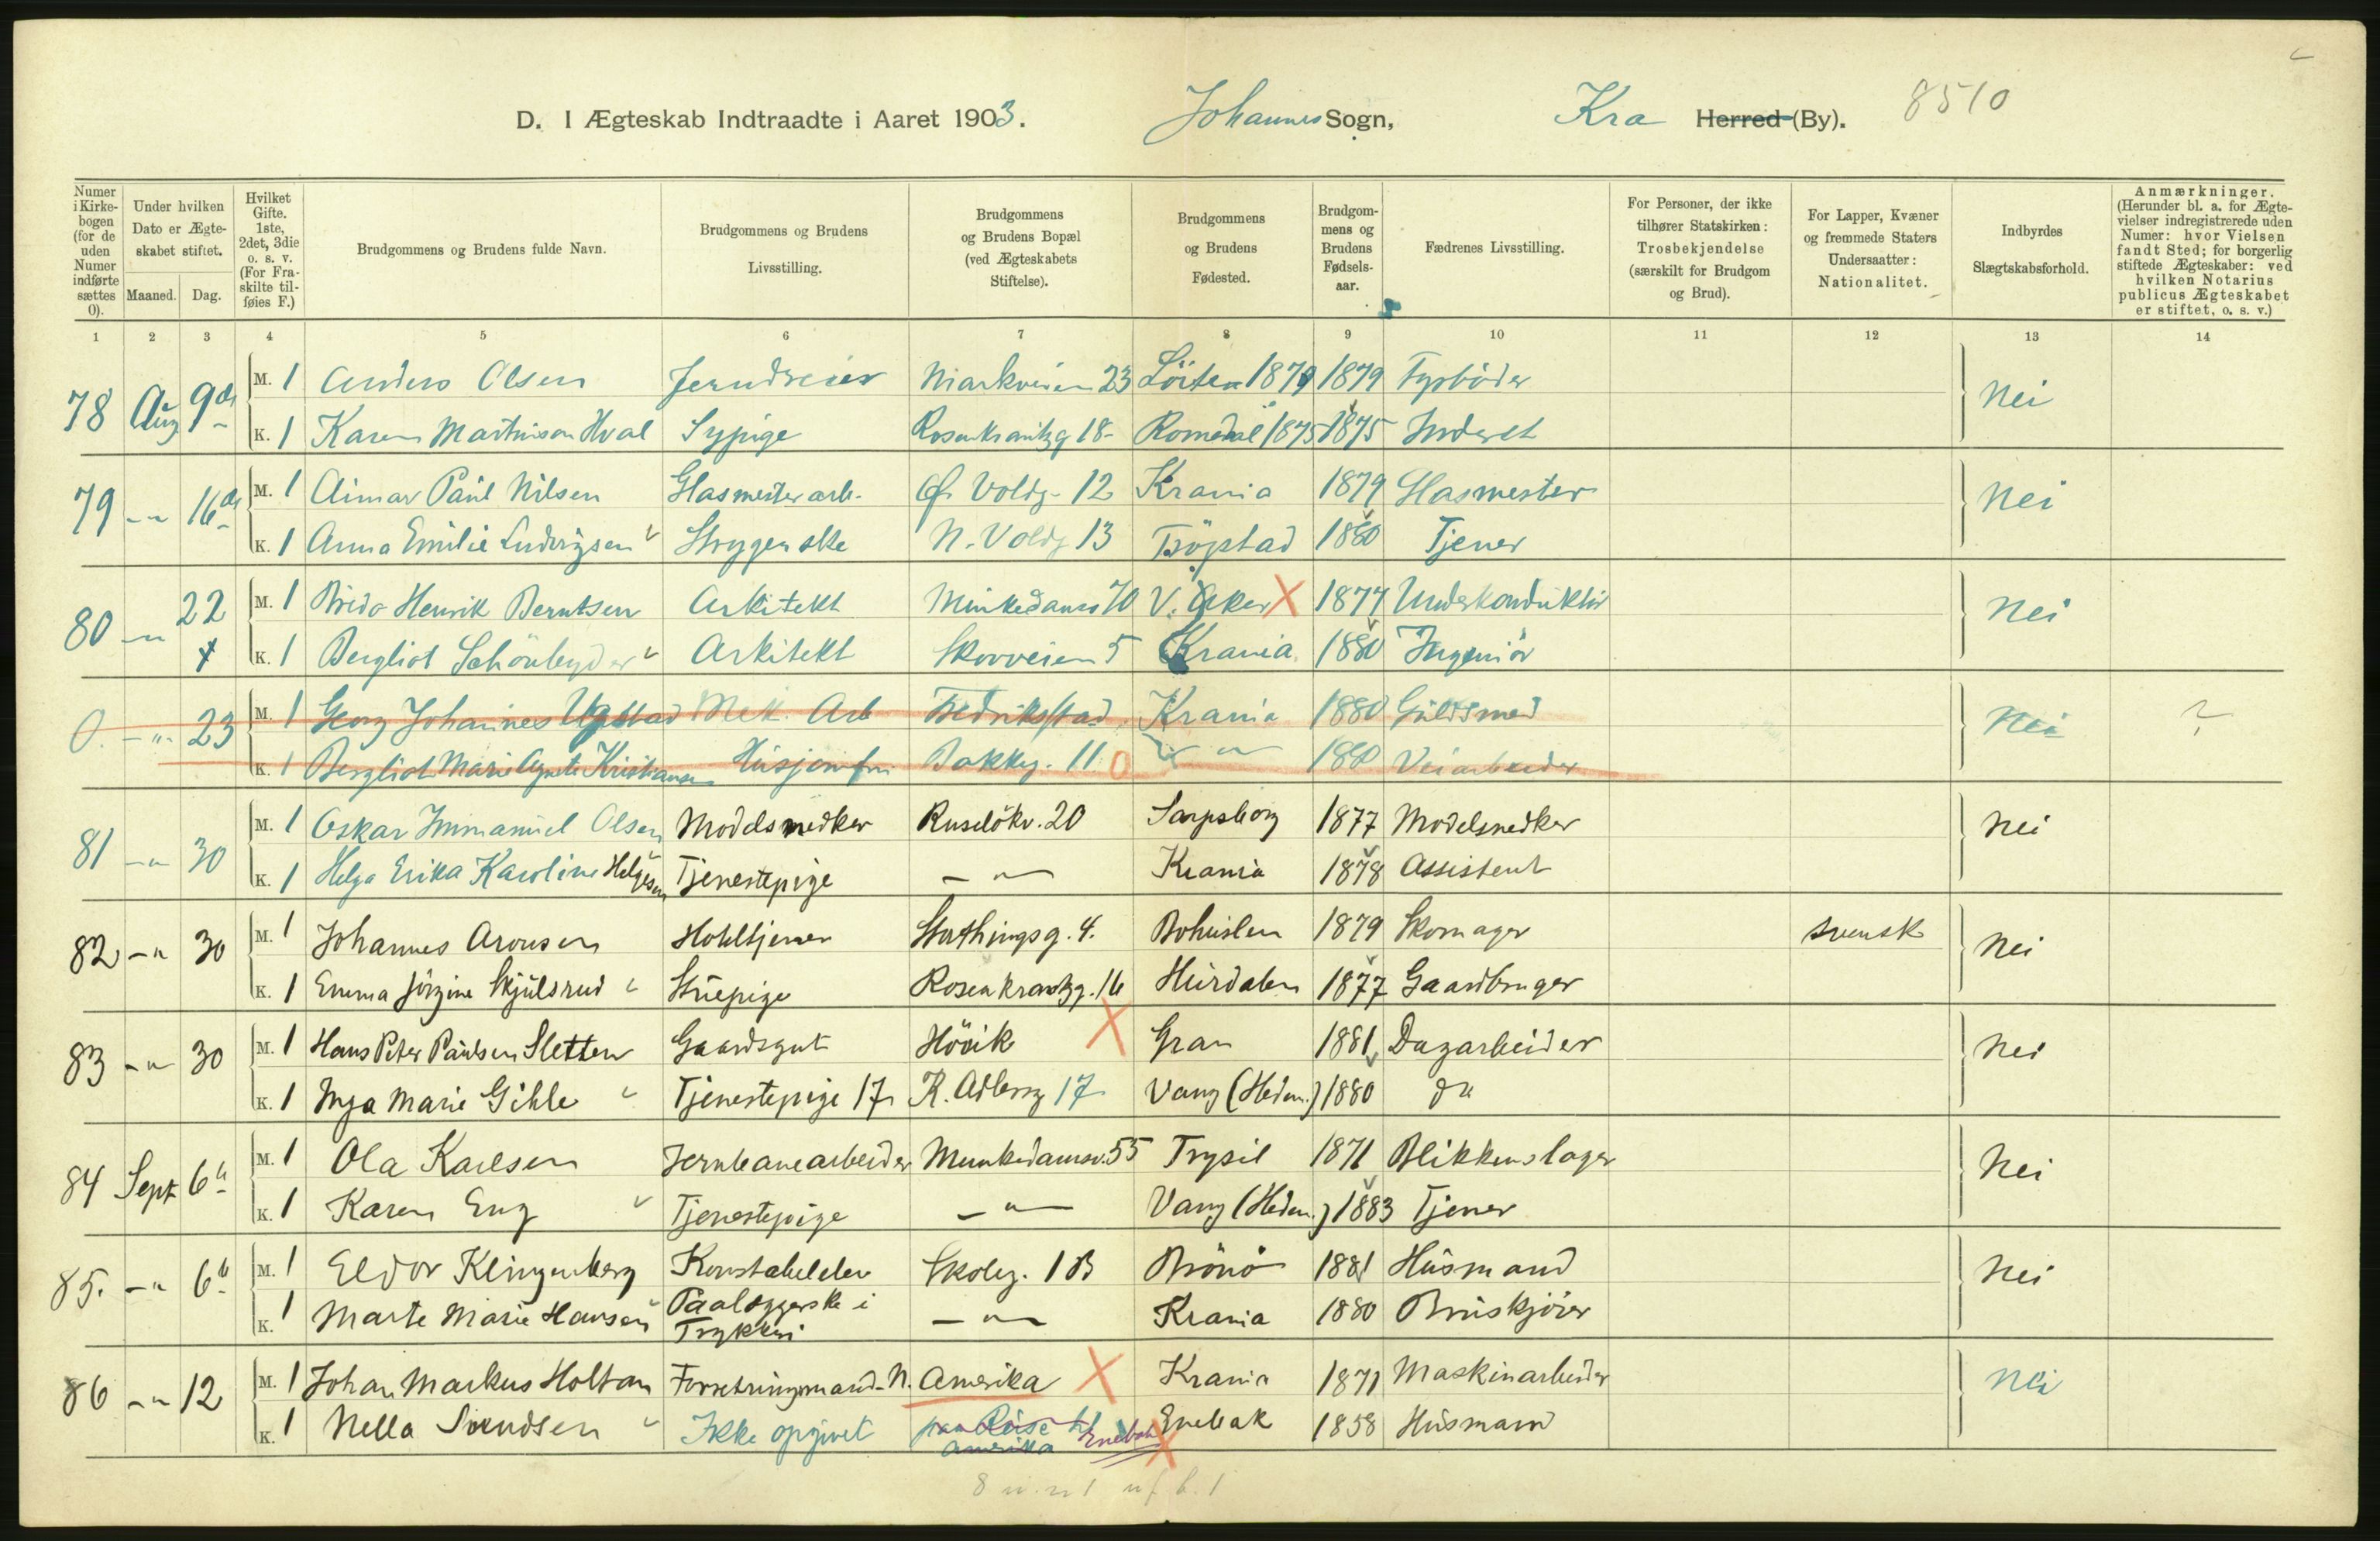 D. I Ægteskab Indtraadte i Aaret 1903. Johannes Sogn, Kra Herred (By). 8510
Numer i Kirkebogen (for de uden Numer indførte sættes 0). Under hvilken Dato er Ægteskabet stiftet. Maaned. Dag. Hvilket Gifte. 1ste, 2det, 3die o. s. v. (For Fraskilte tilføies F.) Brudgommens og Brudens fulde Navn. Brudgommens og Brudens Livsstilling. Brudgommens og Brudens Bopæl (ved Ægteskabets Stiftelse). Brudgommens og Brudens Fødested. Brudgommens og Brudens Fødselsaar. Fædrenes Livsstilling. For Personer, der ikke tilhører Statskirken: Trosbekjendelse (særskilt for Brudgom og Brud). For Lapper, Kvæner og fremmede Staters Undersaatter: Nationalitet. Indbyrdes Slægtskabsforhold. Anmærkninger. (Herunder bl. a. for Ægtevielser indregistrerede uden Numer: hvor Vielsen fandt Sted; for borgerlig stiftede Ægteskaber: ved hvilken Notarius publicus Ægteskabet er stiftet, o. s. v.)
1 2 3 4 5 6 7 8 9 10 11 12 13 14
78 Aug 9de M. 1 Anders Olsen Jerndreier Markveien 23 Löiten 1879 1879 Fyrböder Nei
K. 1 Karen Martinsen Hval Sypige Rosenkrantzg 18 Romedal 1875 1875 Inderst
79 -"- 16de M. 1 Aimar Paul Nilsen Glasmesterarb. Ø. Voldg. 12 Krania 1879 Glasmester Nei
K. 1 Anna Emilie Ludvigsen Strygerske N. Voldg 13 Trögstad 1880 Tjener
80 -"- 22 M. 1 Bredo Henrik Berntsen Arkitekt Munkedamsv 70 V. Aker X 1877 Underkonduktör Nei
K. 1 Bergliot Schönheyder Arkitekt Skovveien 5 Krania 1880 Ingeniör
0. -"- 23 M. 1 Georg Johannes Ugstad Mek. Arb Fredriksstad Krania 1880 Guldsmed Nei ?
K. 1 Bergliot Marie Agnete Kristiansen Husjomfru Bakkeg. 11. 0 -"- 1880 Veiarbeider
81 -"- 30 M. 1 Oskar Immanuel Olsen Modelsnedker Ruselökv. 20 Sarpsborg 1877 Modelsnedker Nei
K. 1 Helga Erika Karoline Helgesen Tjenestepige -"- Krania 1878 Assistent
82 -"- 30 M. 1 Johannes Aronsen Hoteltjener Storthingsg. 4. Bohuslen 1879 Skomager svensk Nei
K. 1 Emma Jörgine Skjulsrud Stuepige Rosenkrantzg. 16 Hurdalen 1877 Gaardbruger
83 -"- 30 M. 1 Hans Peter Paulsen Sletten Gaardsgut Hövik X Gran 1881 Dagarbeider Nei
K. 1 Inga Marie Gihle Tjenestepige 17 K. Adlersg 17 Vang (Hedm.) 1880 do
84 Sept 6te M. 1 Ola Karlsen Jernbanearbeider Munkedamsv. 55 Trysil 1871 Blikkenslager Nei
K. 1 Karen Eng Tjenestepige -"- Vang (Hedm.) 1883 Tjener
85. -"- 6te M. 1 Eldor Klingenberg Konstabelelev Skoleg. 1 B Brönö 1881 Husmand Nei
K. 1 Marte Marie Hansen Paalæggerske i Trykkeri -"- Krania 1880 Bruskjörer
86 -"- 12 M. 1 Johan Markus Holtan Forretningsmand N. Amerika X Krania 1871 Maskinarbeider Nei
K. 1 Nella Svendsen Ikke opgivet paa Reise til Amerika Enebak X Enebak 1858 Husmand